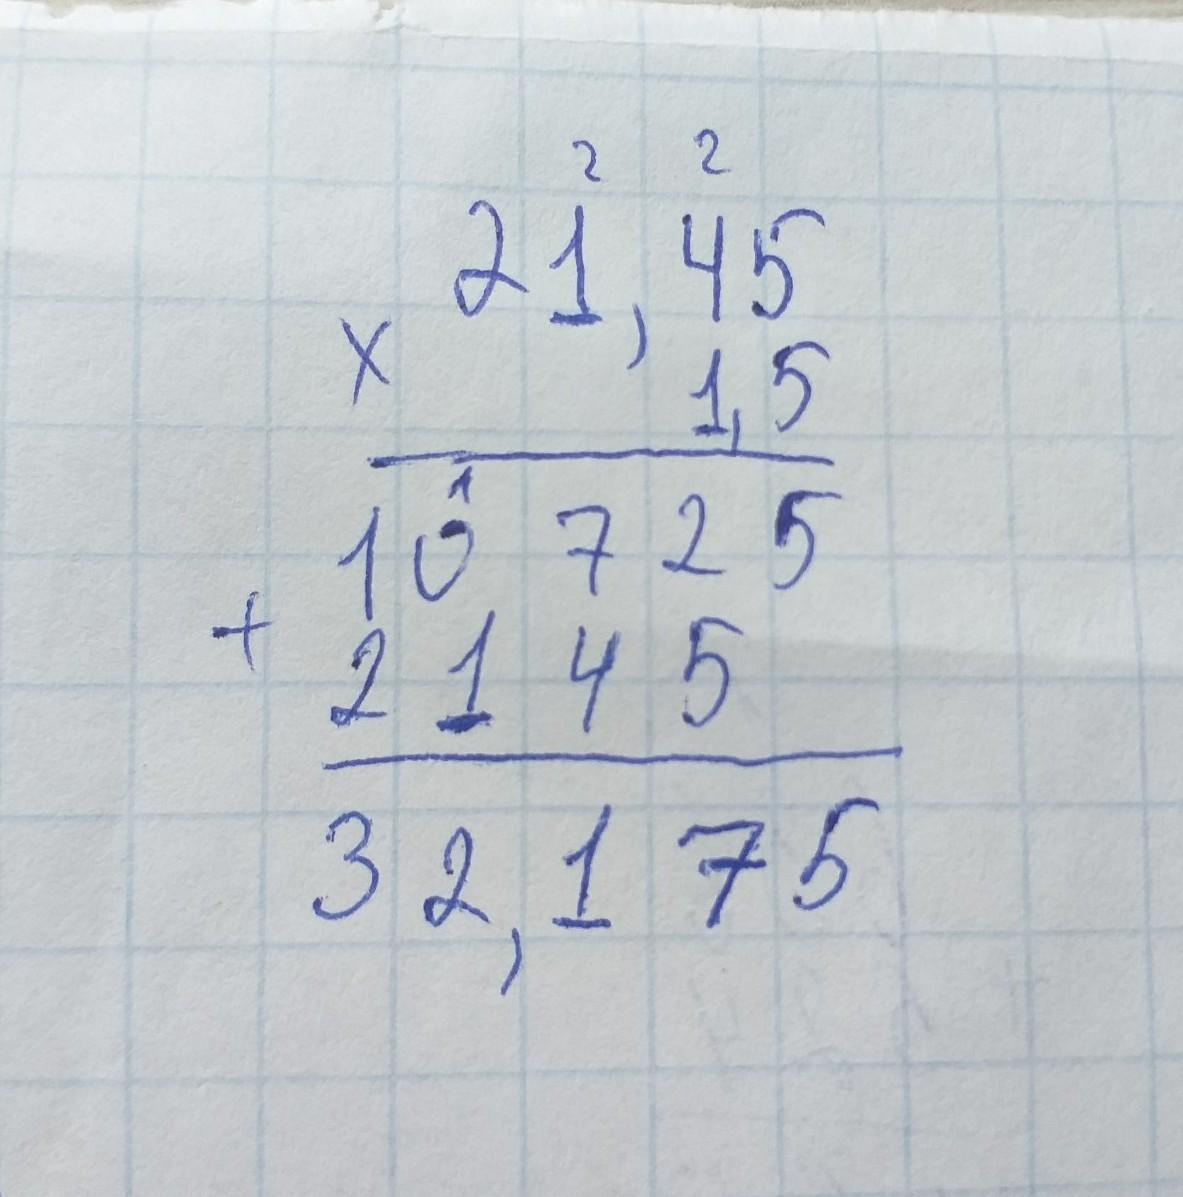 2 2
21,45
×
1,5
1
10725
+
2145
32,175